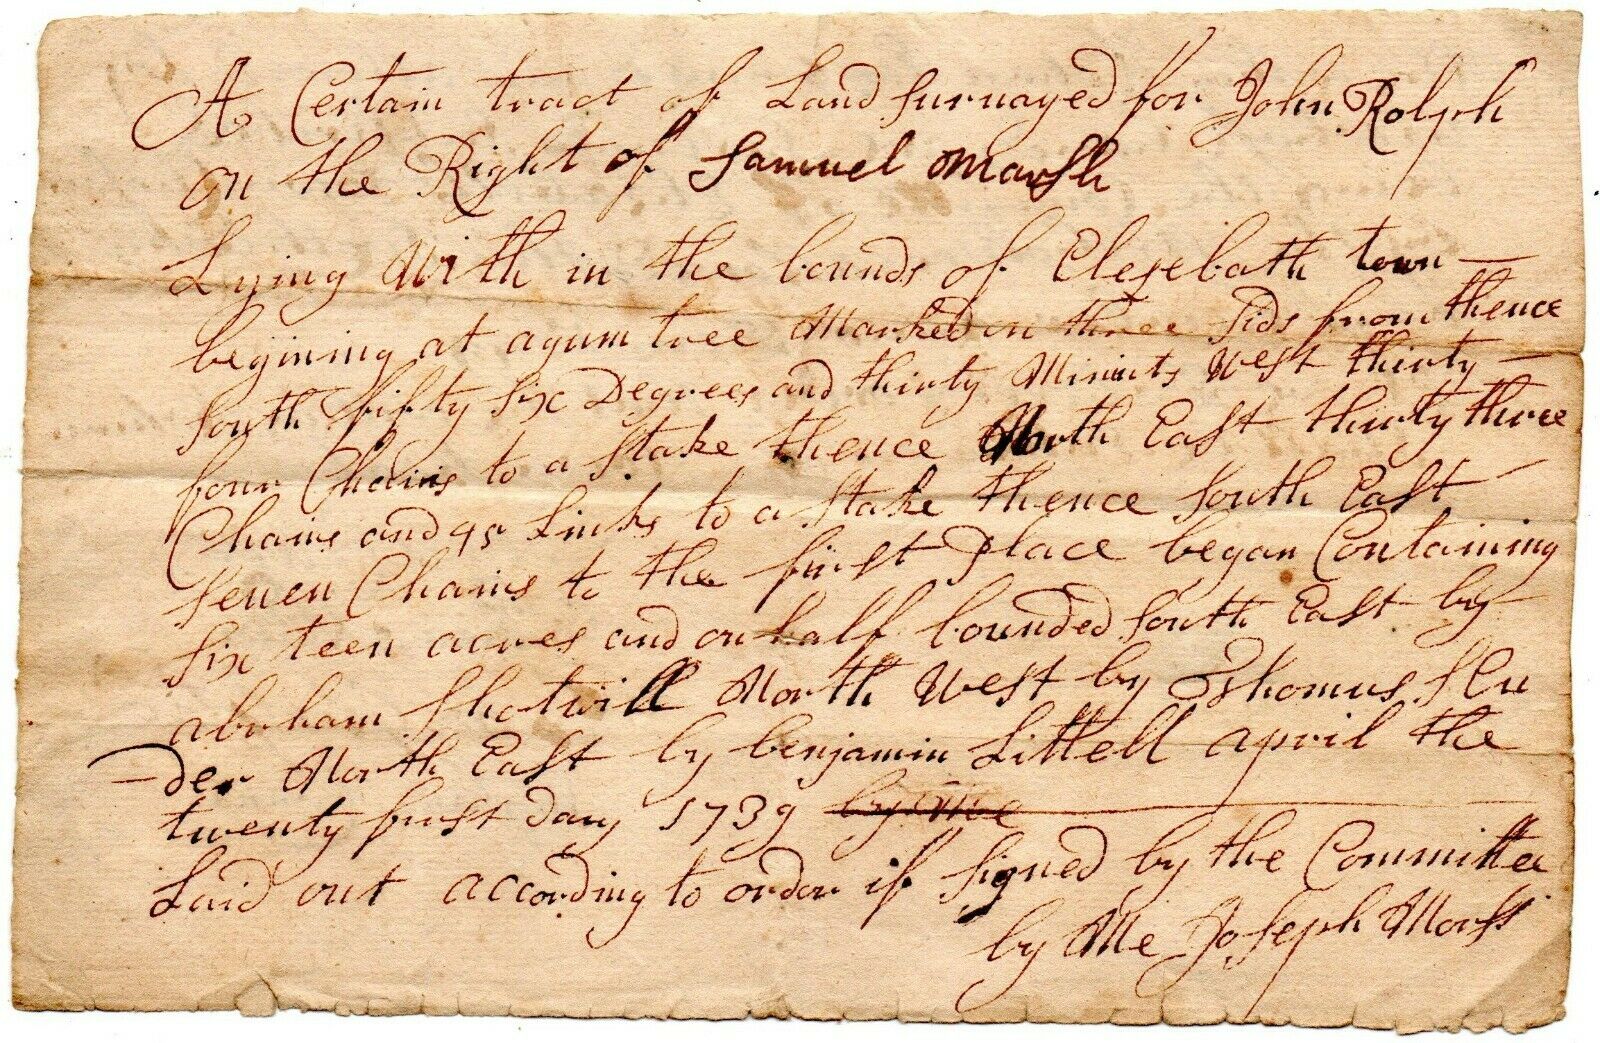 A Certain tract of Land surnayed for John Rolph
on the Right of Samuel Marsh
Lying With in the bounds of Elesebath town —
begining at agum tree Marked on three sids from thence
South fifty six Degrees and thirty Minuts West thirty —
four Chains to a stake thence North East thirty three
Chains and 45 Links to a stake thence South East —
seuen Chains to the first place began Containing
six teen acres and on half bounded South East by
abraham Shotwill North West by Thomas Clu
—der North East by benjamin Littell april the
twenty furst Day 1739 by Me
Laid out according to order if signed by the Committee
by Me Joseph Morss